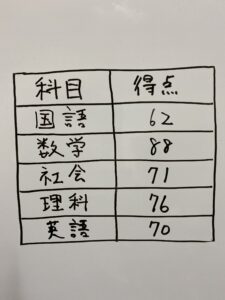 科目 得点
国語 62
数学 88
社会 71
理科 76
英語 70